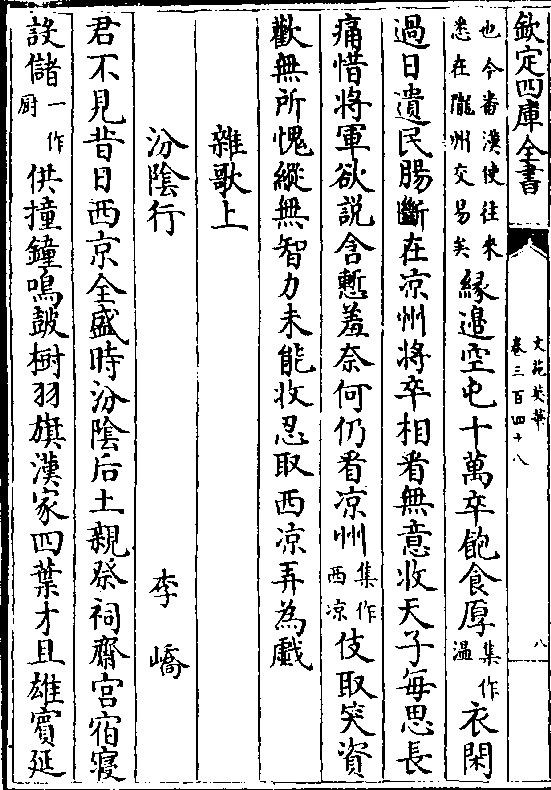 欽定四庫全書
文苑英華
卷三百四十八
八
也今蕃漢使往來
悉在隴州交易矣
縁邉空屯十萬卒飽食厚
集作
温
衣閑
過日遺民腸斷在凉州將卒相看無意收天子每思長
痛惜將軍欲説含慙羞奈何仍看凉州
集作
西凉
伎取笑資
歡無所愧縱無智力未能收忍取西凉弄為戲
雜歌上
汾隂行 李嶠
君不見昔日西京全盛時汾隂后土親祭祠齋宫宿寢
設儲
一作
厨
供撞鐘鳴皷樹羽旗漢家四葉才且雄賓延